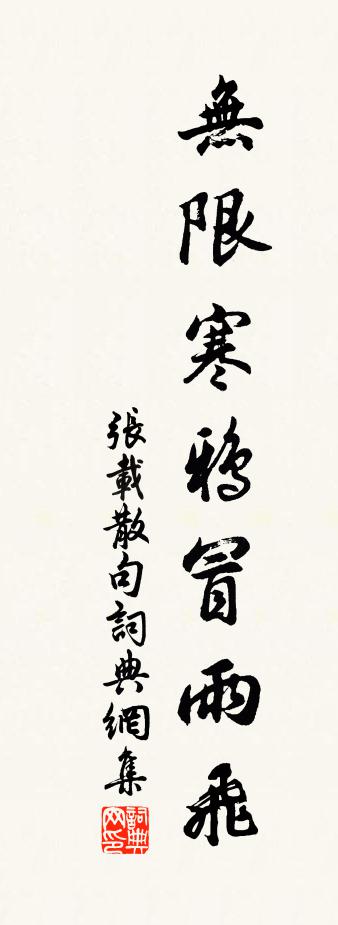 無限寒鴉冒雨飛
張載散句詞典網集
詞典网印